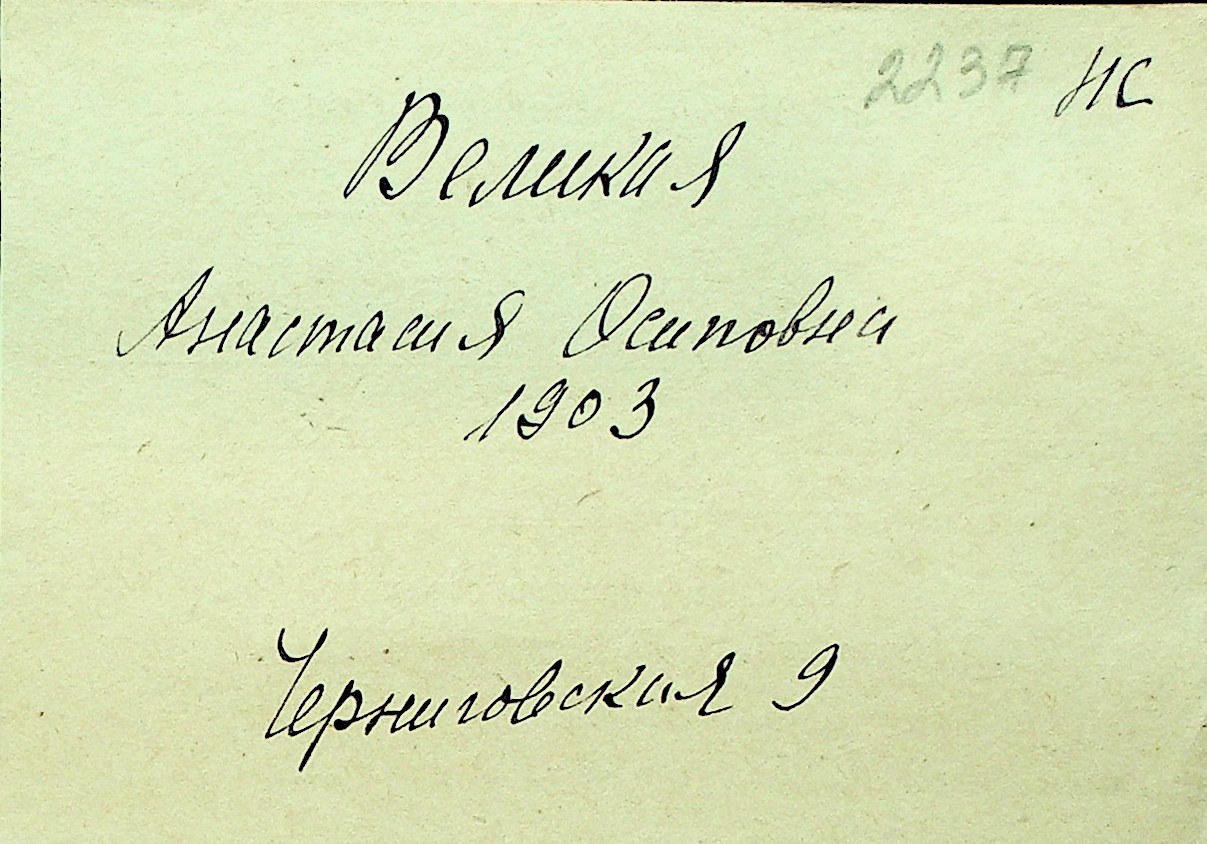 2237 НС
Великая
Анастасия Осиповна
1903
Черниговская 9